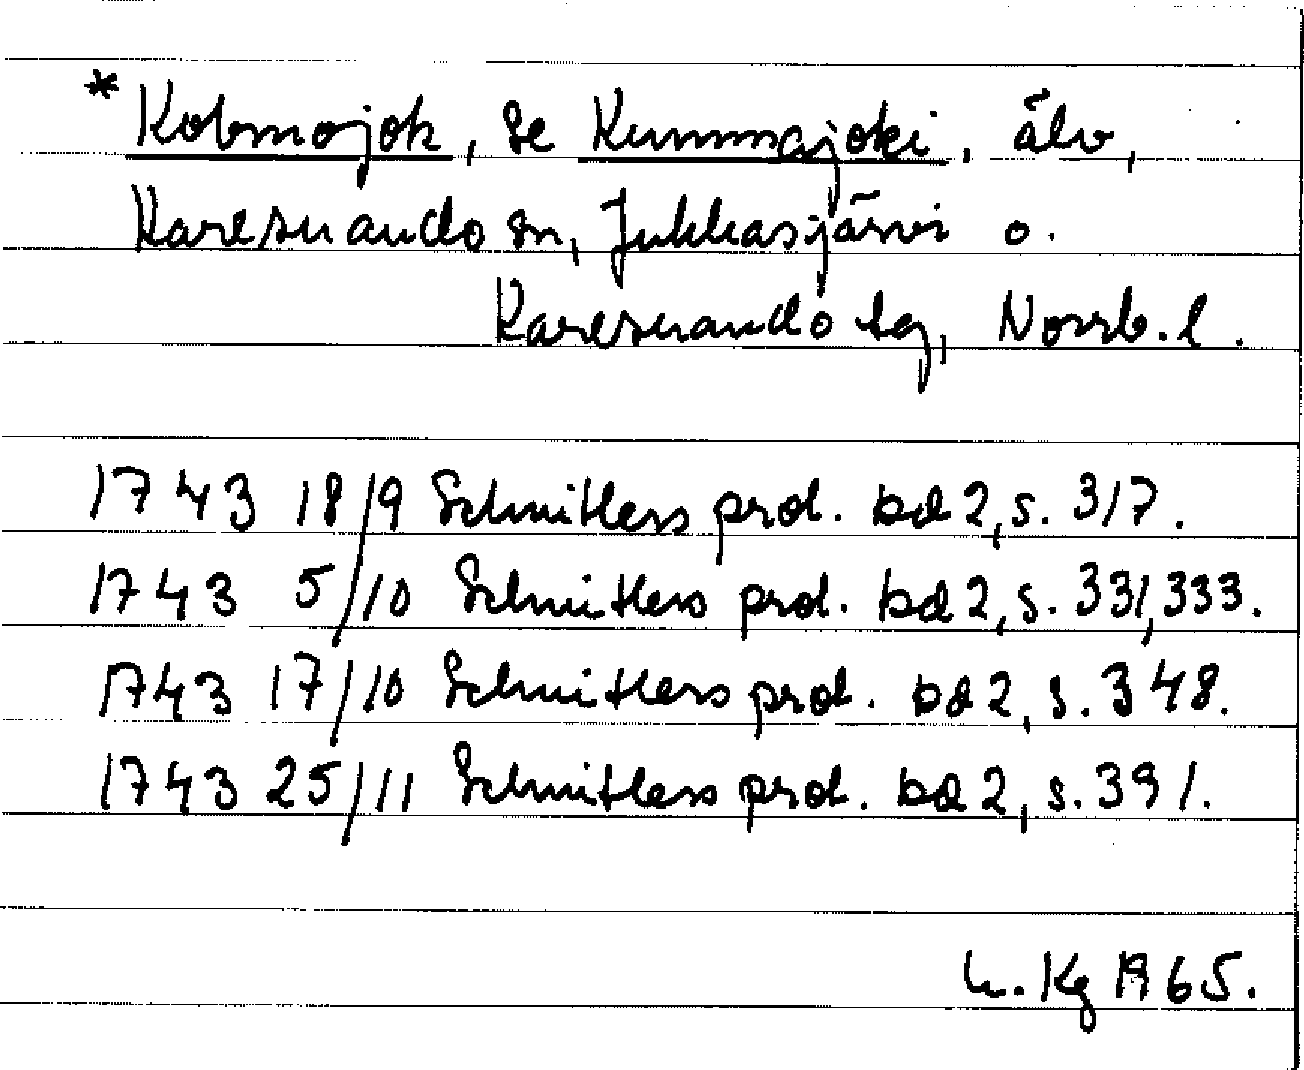 * Kobmojok, se Kummajoki, älv,
Karesuando sn, Jukkasjärvi o.
Karesuando tg, Norrb. l.
1743 18/9 Schnitlers prot. bd 2, s. 317.
1743 5/10 Schnitlers prot. bd 2, s. 331, 333.
1743 17/10 Schnitlers prot. bd 2, s. 348.
1743 25/11 Schnitlers prot. bd 2, s. 391.
Kg 1965.